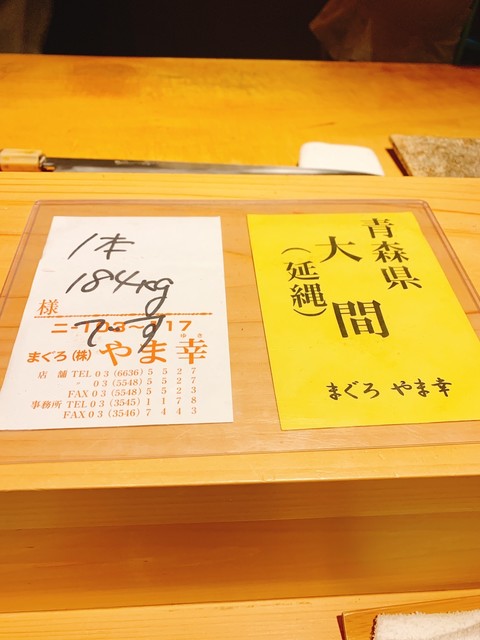 1本
184kg
です
様
ニ-1103~1117
まぐろ(株)やま幸
ゆき
店舗 TEL 03(6636)5527
〃 03(5548)5527
FAX 03(5548)5523
事務所 TEL 03(3545)1178
FAX 03(3546)7443
青森県
大間
(延縄)
まぐろ やま幸